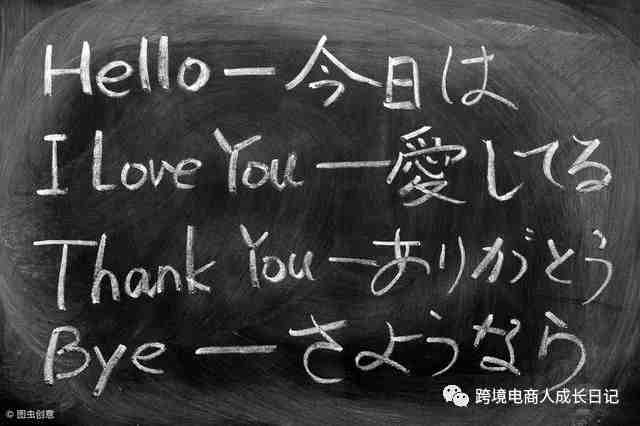 Hello — 今日は
I Love You — 愛してる
Thank You — ありがとう
Bye — さようなら
跨境电商人成长日记
© 图虫创意